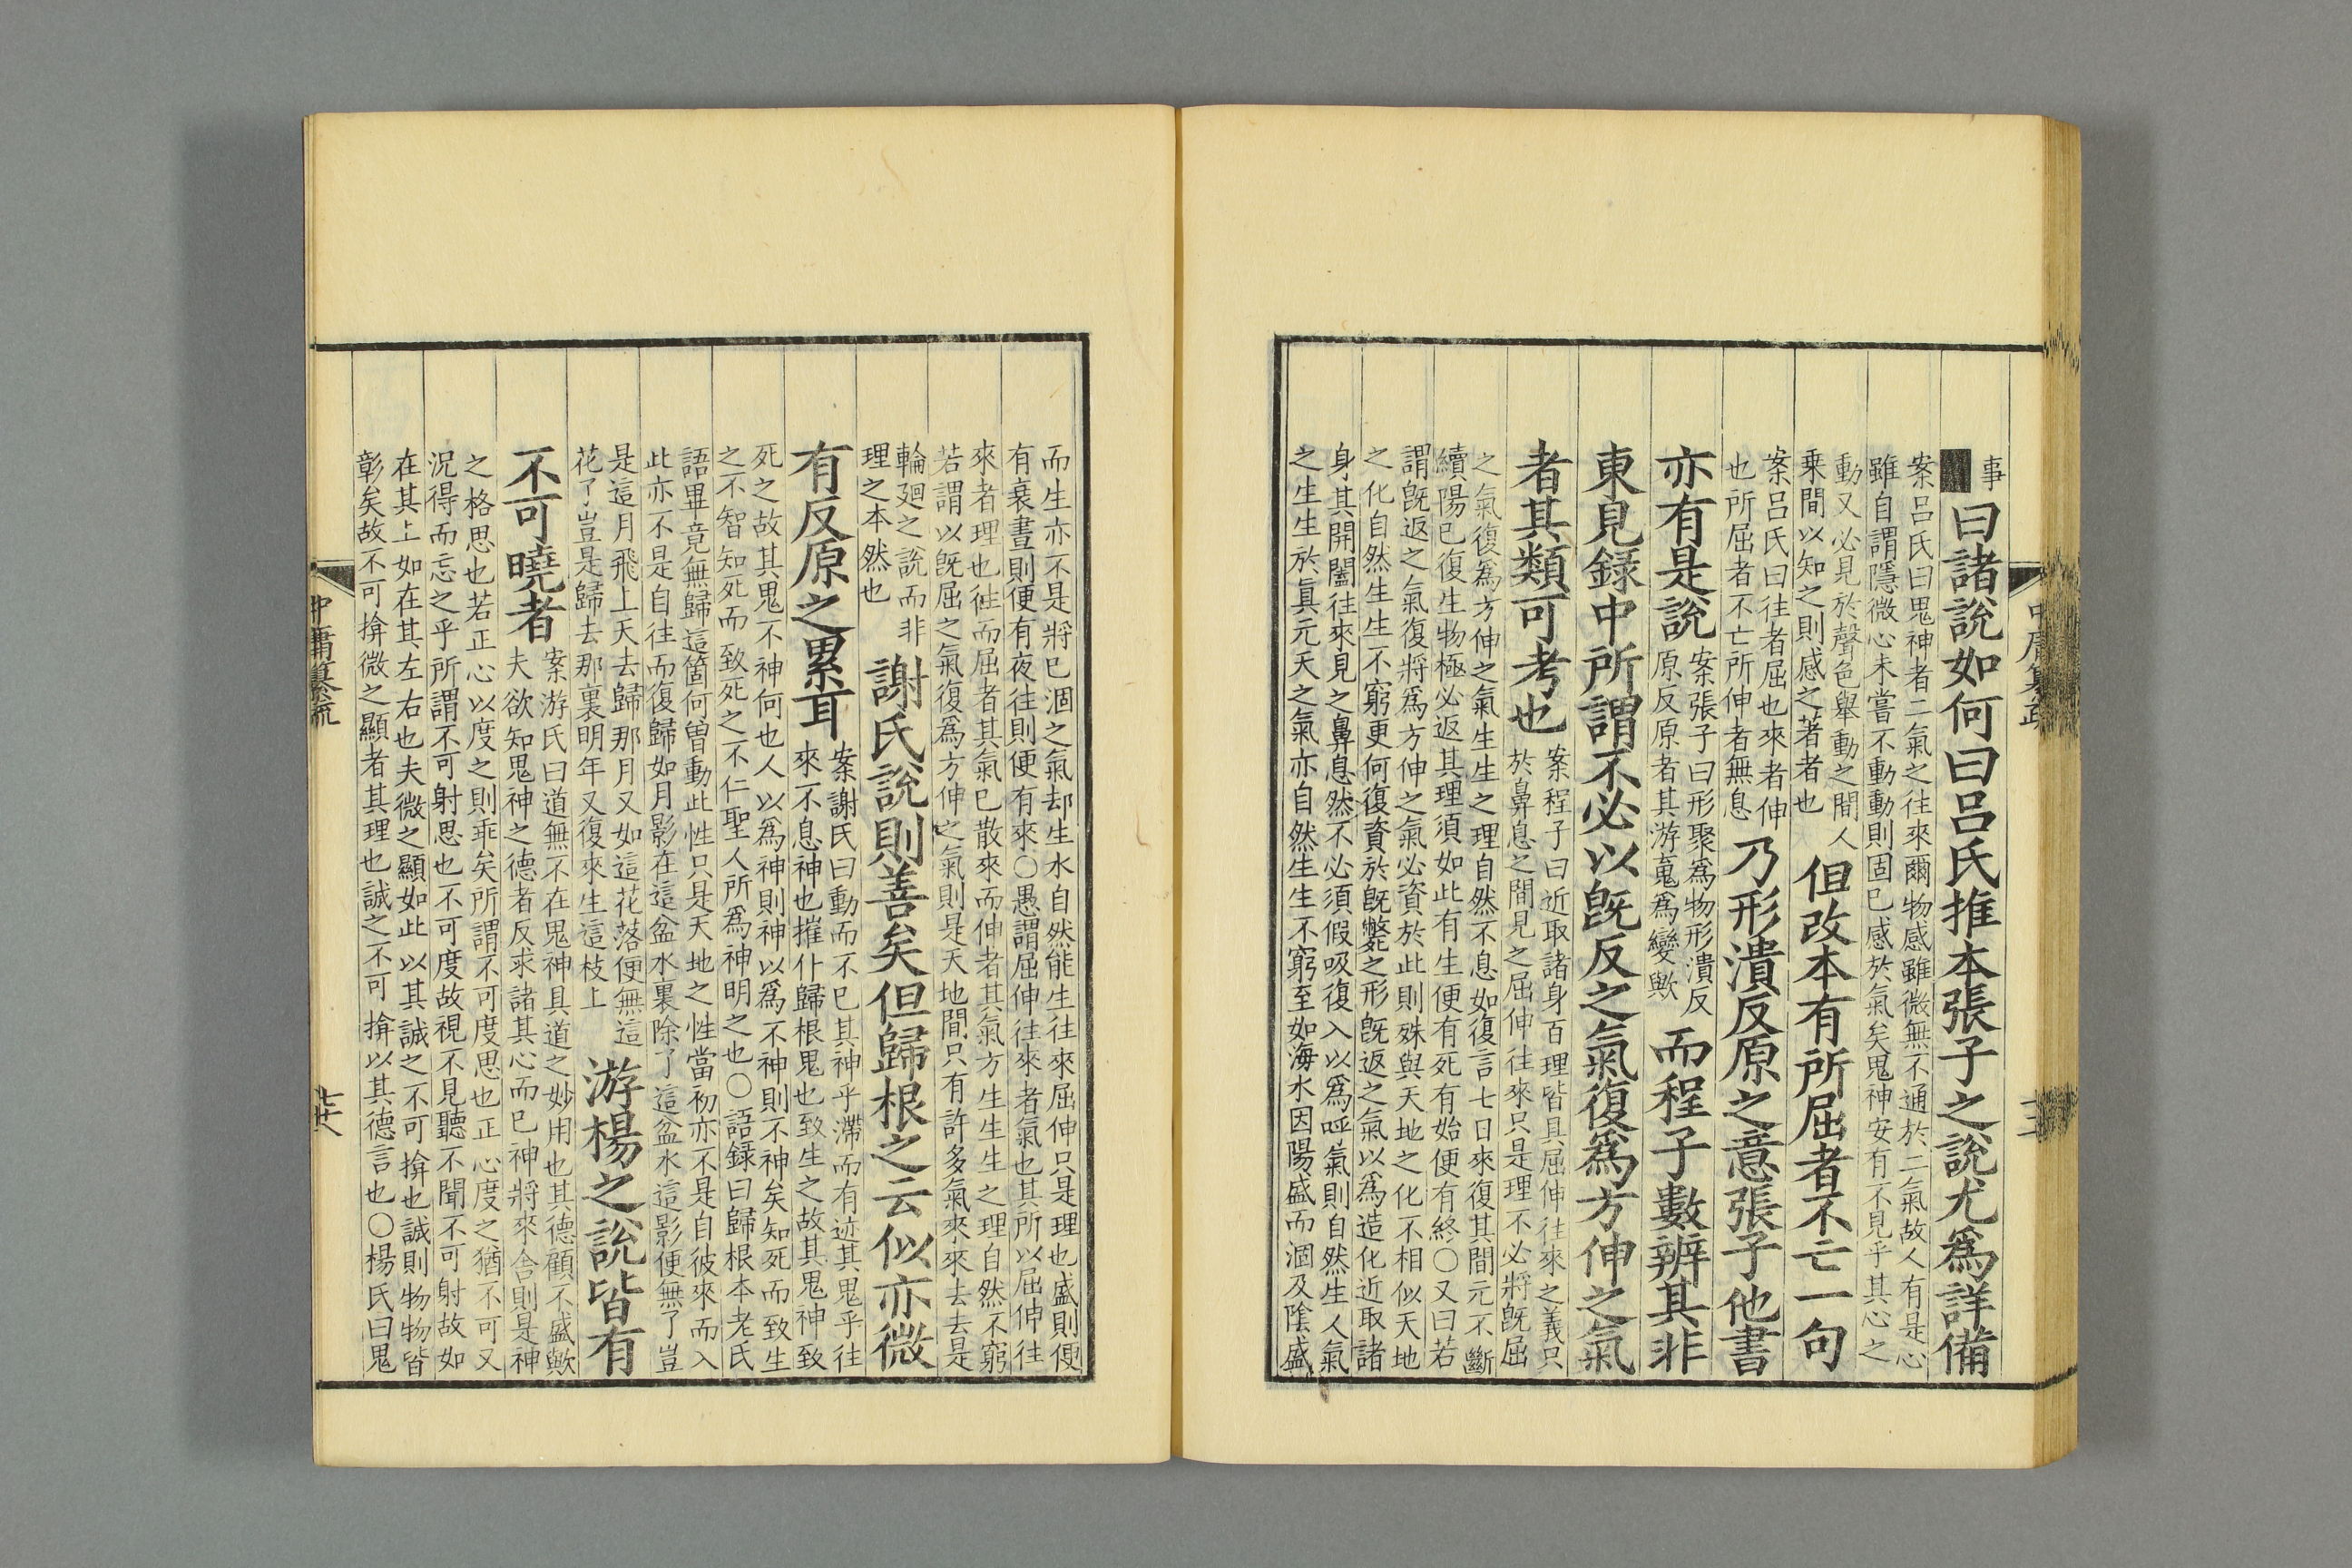 事
曰諸說如何曰呂氏推本張子之說尤爲詳備
案呂氏曰鬼神者二氣之往來爾物感雖微無不通於二氣故人有是心
雖自謂隱微心未嘗不動動則固已感於氣矣鬼神安有不見乎其心之
動又必見於聲色舉動之間人
乗間以知之則感之著者也
但改本有所屈者不亡一句
案呂氏曰往者屈也來者伸
也所屈者不亡所伸者無息
乃形潰反原之意張子他書
亦有是說
案張子曰形聚爲物形潰反
原反原者其游䰟爲變歟
而程子數辨其非
東見錄中所謂不必以旣反之氣復爲方伸之氣
者其類可考也
案程子曰近取諸身百理皆具屈伸往來之義只
於鼻息之間見之屈伸往來只是理不必將旣屈
之氣復爲方伸之氣生生之理自然不息如復言七日來復其間元不斷
續陽已復生物極必返其理須如此有生便有死有始便有終○又曰若
謂旣返之氣復將爲方伸之氣必資於此則殊與天地之化不相似天地
之化自然生生不窮更何復資於旣斃之形旣返之氣以爲造化近取諸
身其開闔往來見之鼻息然不必須假吸復入以爲呼氣則自然生人氣
之生生於眞元天之氣亦自然生生不窮至如海水因陽盛而涸及陰盛
中庸纂疏
而生亦不是將已涸之氣却生水自然能生往來屈伸只是理也盛則便
有衰晝則便有夜往則便有來○愚謂屈伸往來者氣也其所以屈伸往
來者理也往而屈者其氣已散來而伸者其氣方生生生之理自然不窮
若謂以旣屈之氣復爲方伸之氣則是天地間只有許多氣來來去去是
輪廻之說而非
理之本然也
謝氏說則善矣但歸根之云似亦微
有反原之累耳
案謝氏曰動而不已其神乎滯而有迹其鬼乎往
來不息神也摧仆歸根鬼也致生之故其鬼神致
死之故其鬼不神何也人以爲神則神以爲不神則不神矣知死而致生
之不智知死而致死之不仁聖人所爲神明之也○語錄曰歸根本老氏
語畢竟無歸這箇何曾動此性只是天地之性當初亦不是自彼來而入
此亦不是自往而復歸如月影在這盆水裏除了這盆水這影便無了豈
是這月飛上天去歸那月又如這花落便無這
花了豈是歸去那裏明年又復來生這枝上
游楊之說皆有
不可曉者
案游氏曰道無不在鬼神具道之妙用也其德顧不盛歟
夫欲知鬼神之德者反求諸其心而已神將來舍則是神
之格思也若正心以度之則乖矣所謂不可度思也正心度之猶不可又
況得而忘之乎所謂不可射思也不可度故視不見聽不聞不可射故如
在其上如在其左右也夫微之顯如此以其誠之不可揜也誠則物物皆
彰矣故不可揜微之顯者其理也誠之不可揜以其德言也○楊氏曰鬼
中庸纂疏